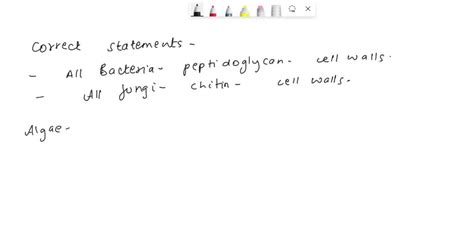 Correct statements -
- All Bacteria - peptidoglycan - cell walls.
- All fungi - chitin - cell walls.
Algae -